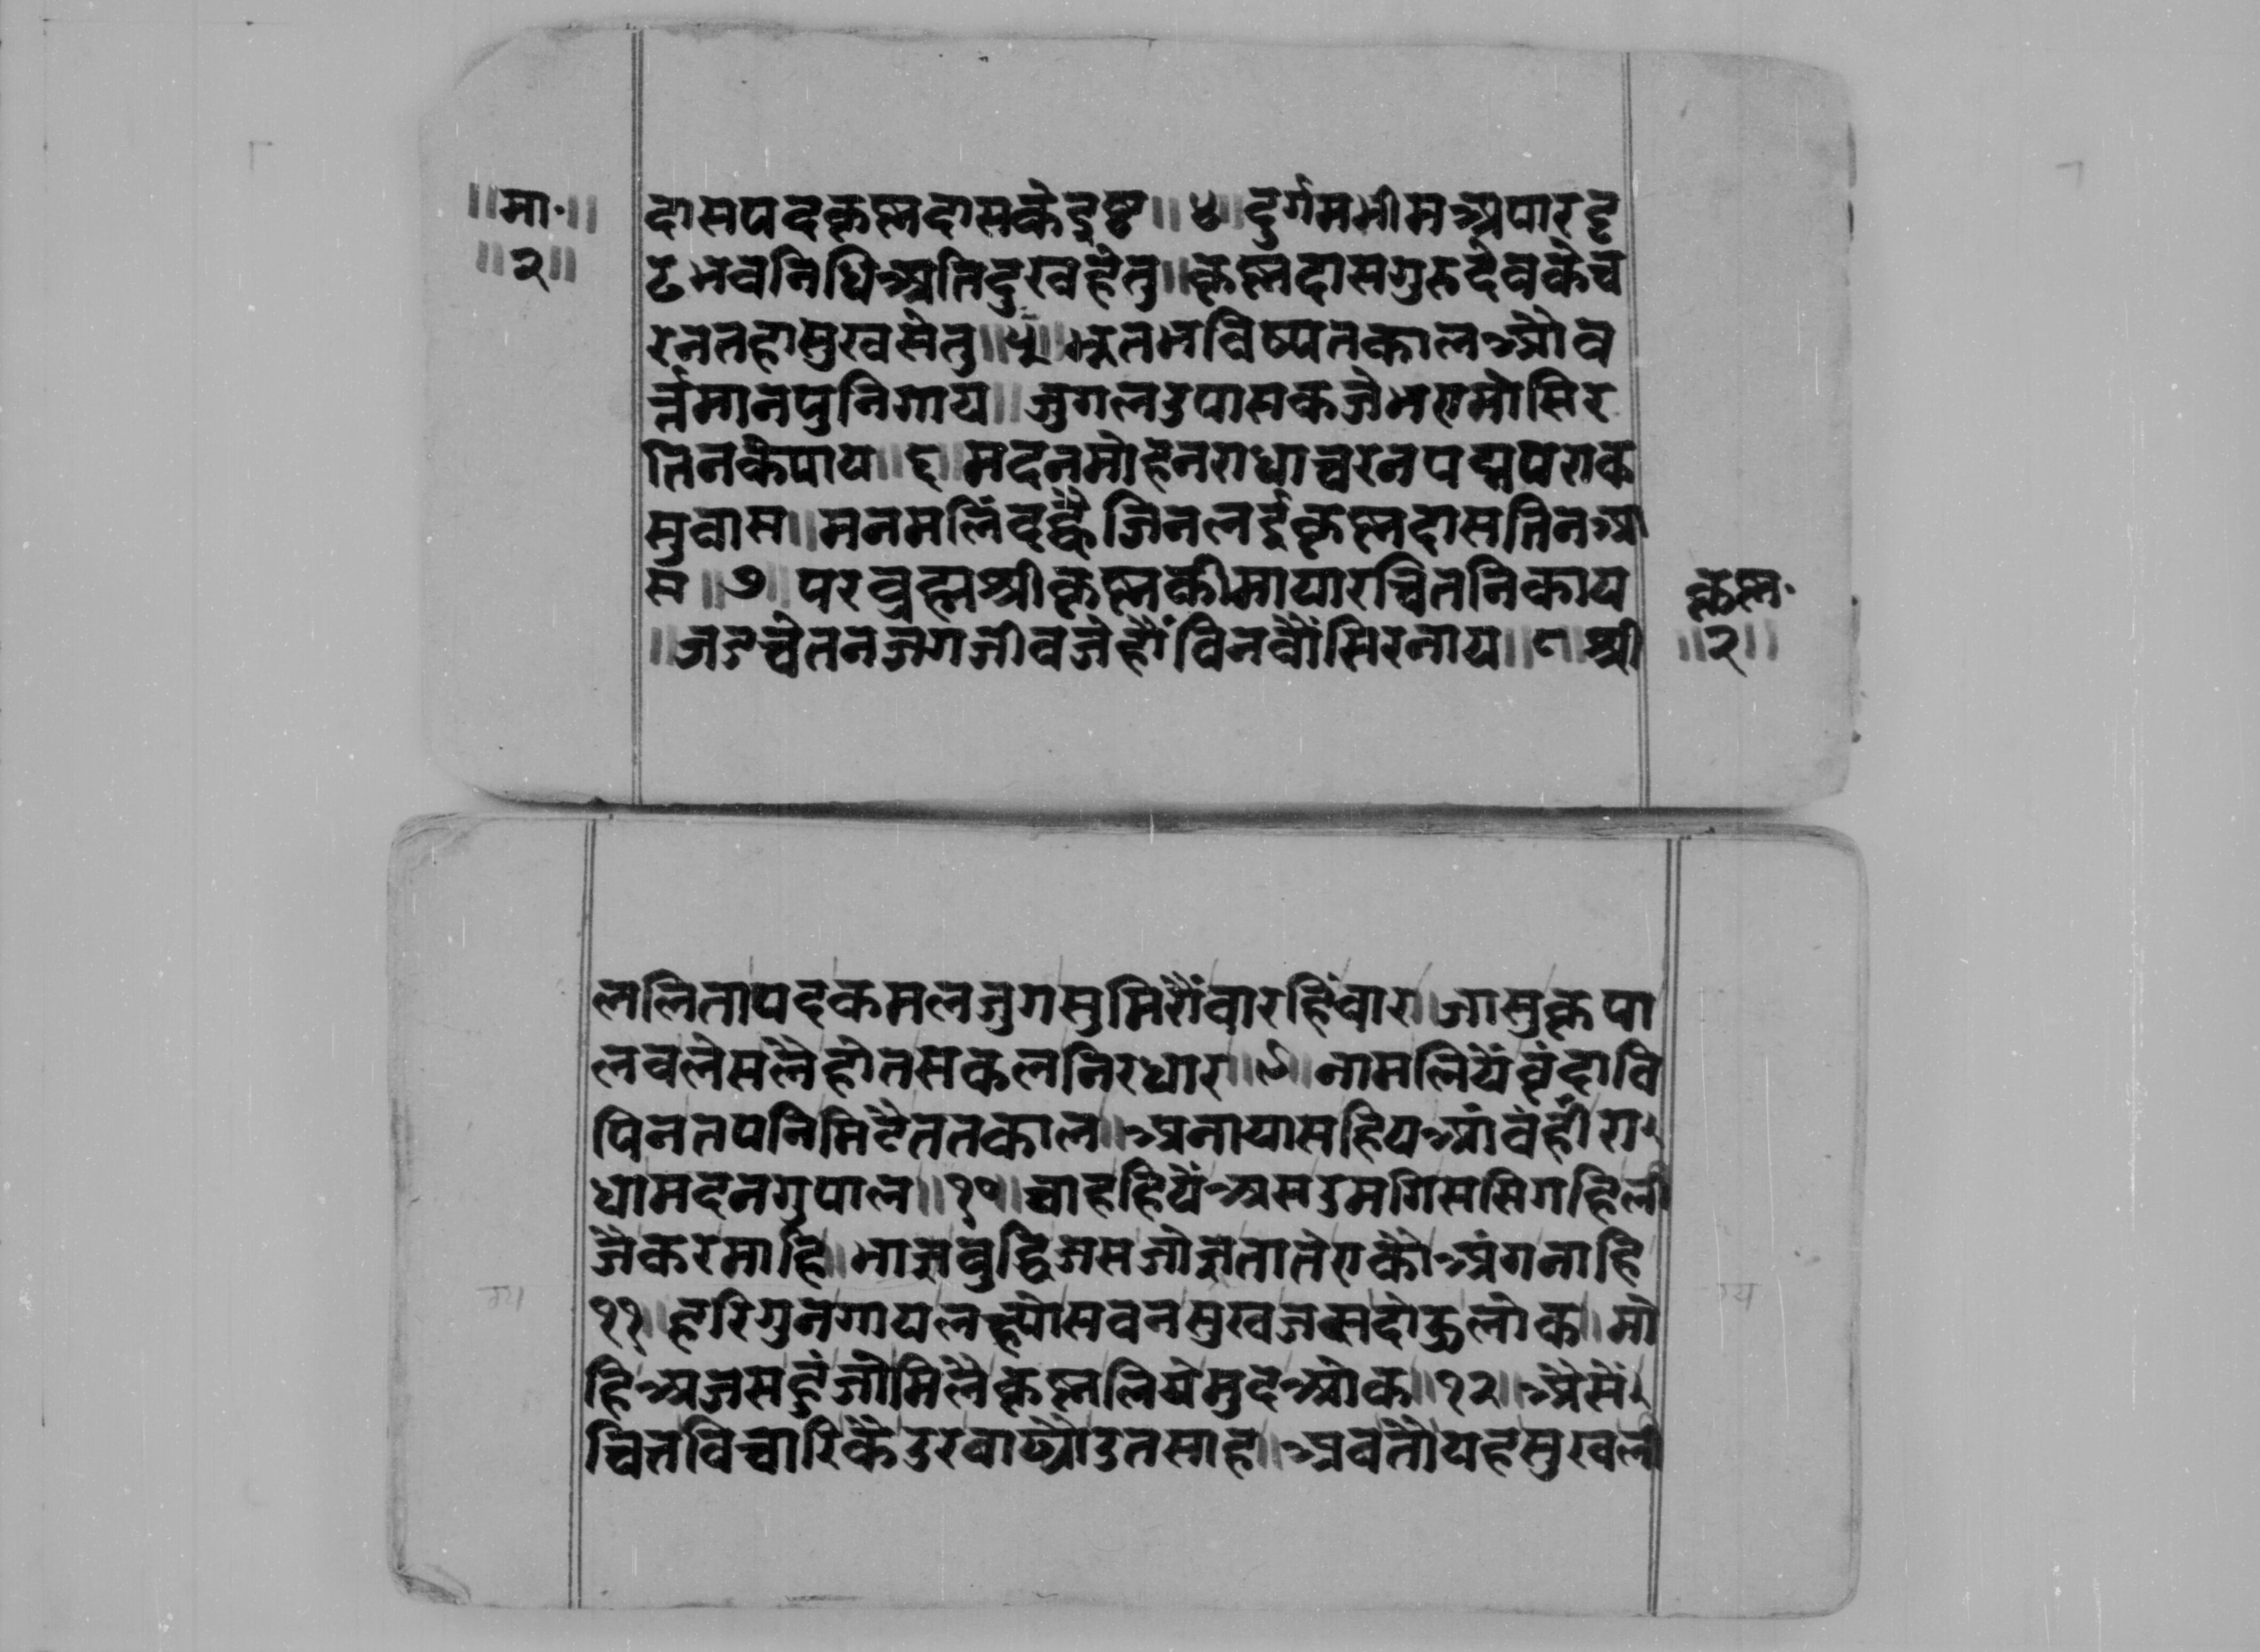 ॥मा॰॥
॥२॥
दासपदकृष्नदासकेइष्ट॥४॥दुर्गमभीमअपारदृ
ढभवनिधिअतिदुखहेतु॥कृष्नदासगुरुदेवकेच
रनतहासुखसेतु॥५॥भूतभविष्यतकालऔव
र्त्तमानपुनिगाय॥जुगलउपासकजेभएमोसिर
तिनकेपाय॥६॥मदनमोहनराधाचरनपद्मपराक
सुवास॥मनमलिंदह्वैजिनलईकृष्नदासतिनआ
स॥७॥परब्रह्मश्रीकृष्नकीमायारचितनिकाय
॥जडचेतनजगजीवजेहौंविनवौंसिरनाय॥८॥श्री
कृष्न॰
॥२॥
ललितापदकमलजुगसुमिरौंवारहिंवार॥जासुकृपा
लवलेसलैहोतसकलनिरधार॥९॥नामलियेंवृंदावि
पिनतपनिमिटैततकाल॥अनायासहियआंवहीरा
धामदनगुपाल॥१०॥चाहहियेंअसउमगिससिगहिली
जैकरमाहि॥भासबुद्धिजसजोजुतातेएकौअंगनाहि
११॥हरिगुनगायलह्योसवनसुखजसदोऊलोक॥मो
हिअजसहूंजोमिलैकृष्नलियेमुदओक॥१२॥अैसें
चितविचारिकैउरवाढ्योउतसाह॥अवतौयहसुखली